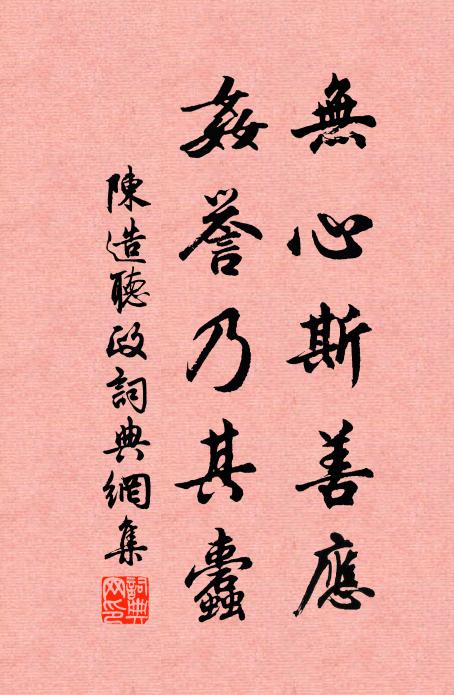 無心斯善應
姦譽乃其蠹
陳造聽政詞典網集
詞典網印